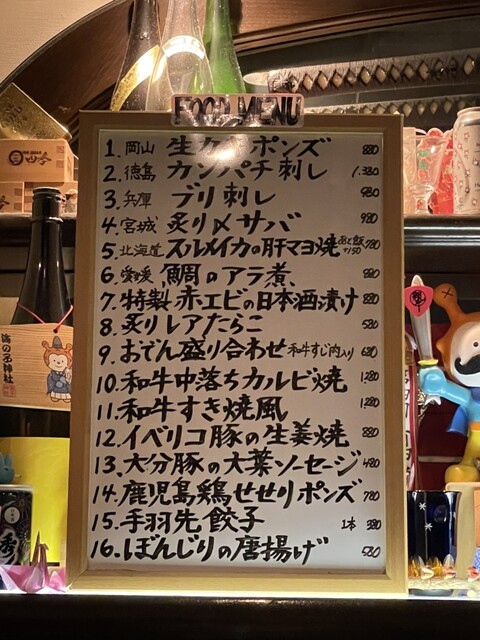 FOOD MENU
1. 岡山 生カキポンズ 880
2. 徳島 カンパチ刺し 1,380
3. 兵庫 ブリ刺し 980
4. 宮城 炙り〆サバ 980
5. 北海道 スルメイカの肝マヨ焼 あと飯+150 780
6. 愛媛 鯛のアラ煮 880
7. 特製 赤エビの日本酒漬け 880
8. 炙りレアたらこ 520
9. おでん盛り合わせ 和牛すじ肉入り 680
10. 和牛中落ちカルビ焼 1,280
11. 和牛すき焼風 1,280
12. イベリコ豚の生姜焼 880
13. 大分豚の大葉ソーセージ 480
14. 鹿児島鶏せせりポンズ 780
15. 手羽先餃子 1本 380
16. ぼんじりの唐揚げ 580